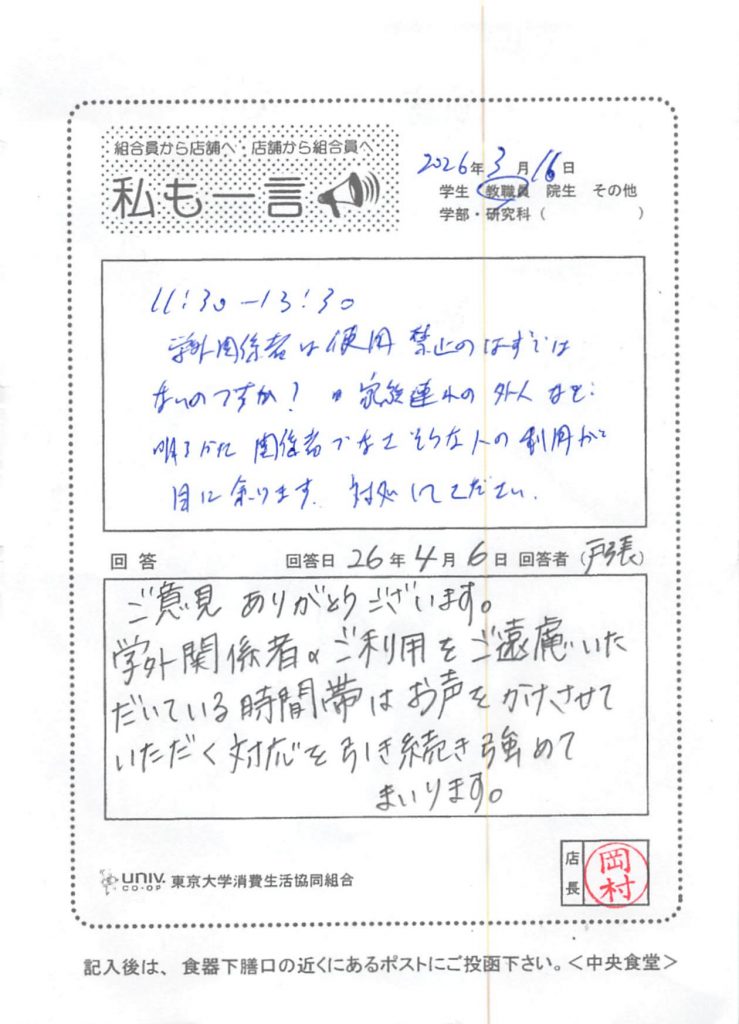 組合員から店舗へ・店舗から組合員へ
私も一言
2026年3月16日
学生 教職員 院生 その他
学部・研究科（　　　　　）
11:30-13:30
学外関係者は使用禁止のはずでは
ないのですか? 家族連れの外人など、
明らかに関係者でなさそうな人の利用が
目に余ります。対処してください。
回答 回答日 26年4月6日 回答者（戸張）
ご意見ありがとうございます。
学外関係者のご利用をご遠慮いた
だいている時間帯はお声をかけさせて
いただく対応を引き続き強めて
まいります。
店長 岡村
UNIV. CO-OP 東京大学消費生活協同組合
記入後は、食器下膳口の近くにあるポストにご投函下さい。＜中央食堂＞